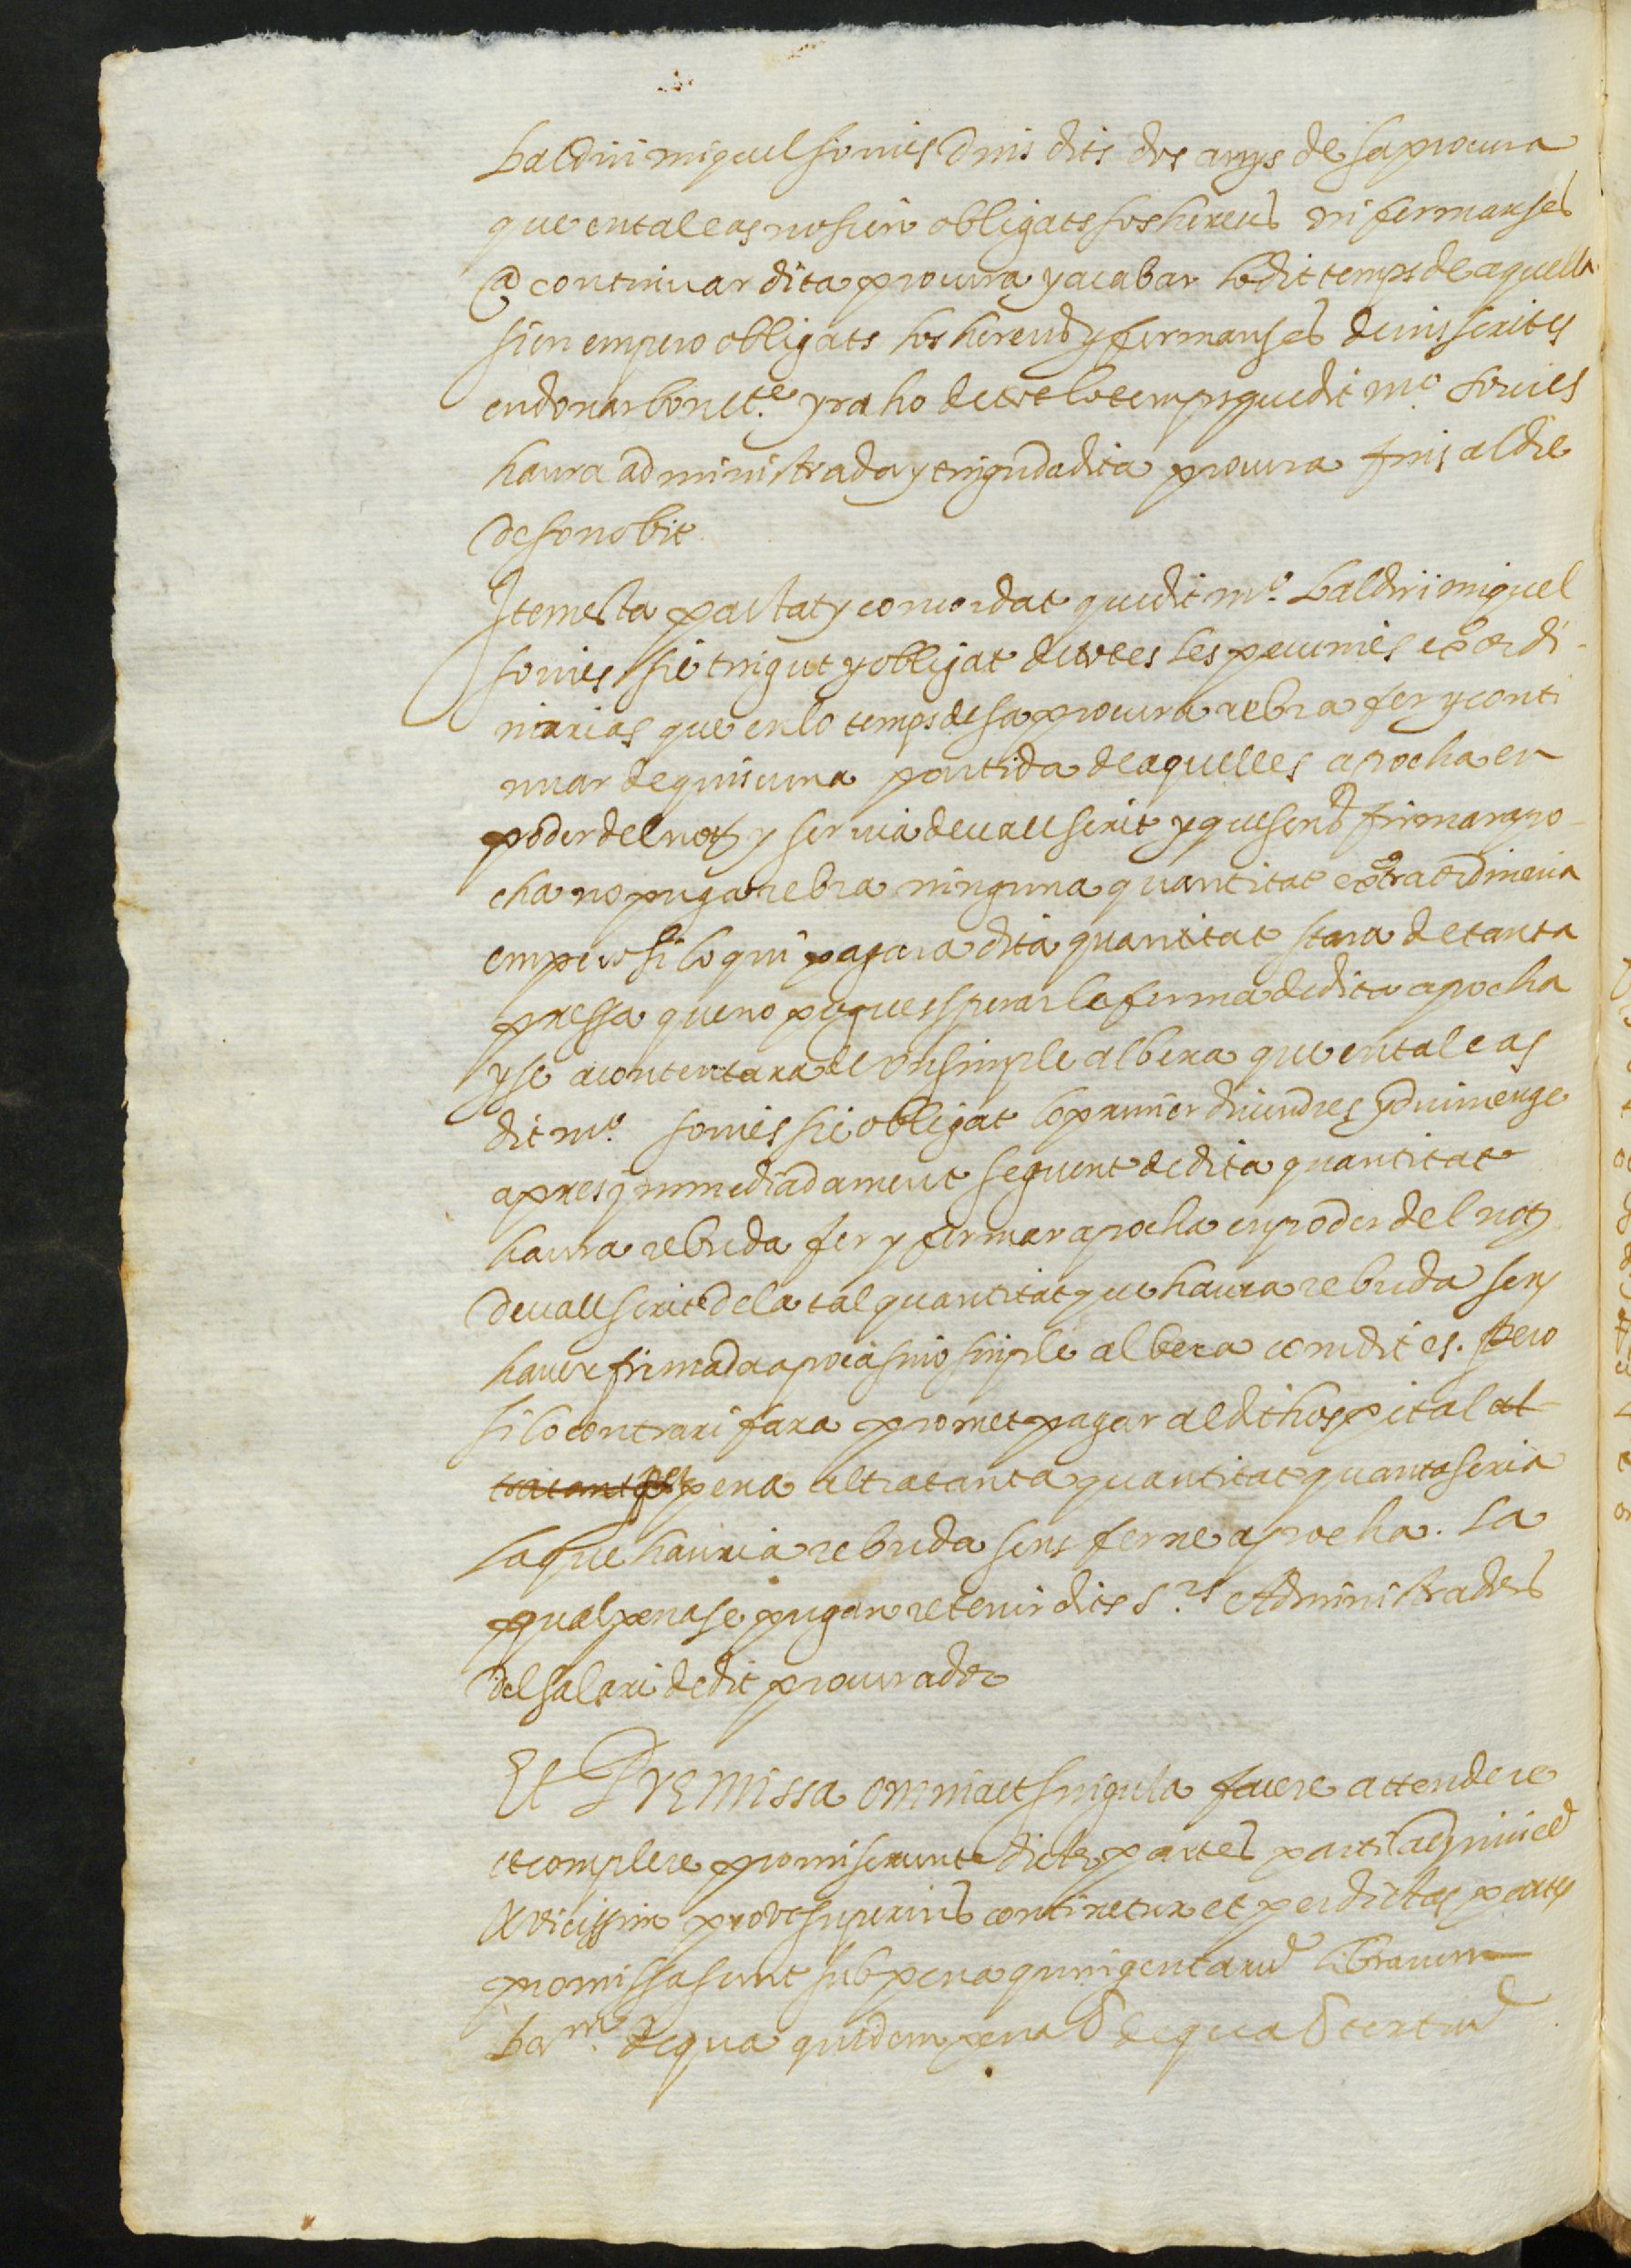 baldiri miquel sovies dins dits dos anys de sa procura
que en tal cas no sien obligats sos hereus ni fermanses
a continuar dita procura y acabar lo dit temps de aquella
sien empero obligats los hereus y fermanses devis scrites
en donar bon cte. y raho de tot lo temps que dit mo. sovies
haura administrada y tinguda dita procura fins al die
de son obit.
Item esta pactat y concordat que dit mo. baldiri miquel
sovies sie tingut y obligat de totes les pecunies exordi-
narias que en lo temps de sa procura rebra fer y conti
nuar de quiscuna partida de aquelles apocha en
poder del not y scriva devall scrit y que sens firmar apo-
cha no puga rebra ninguna quantitat extraordineria
empero si lo qui pagara dita quantitat stara de tanta
pressa que no pugue sperar la ferma de dita apocha
y se acontentara de un simple albera que en tal cas
dit mo. sovies sie obligat lo primer divendres y diumenge
apres ymmediadament seguent de dita quantitat
haura rebuda fer y fermar apocha en poder del not
devall scrit de la tal quantitat que haura rebuda sens
haver firmada apoca sino simple albera com dit es. pero
si lo contrari fara promet pagar al dit hospital al
tra tant per pena altra tanta quantitat quanta seria
la que hauria rebuda sens ferne apocha. La
qual pena se pugan retenir dits Srs Administradors
del salari de dit procurador
Et Premissa omnia et singula facere attendere
et complere promiserunt dicte partes parti ad invicem
& vicissim prout superius continetur et per dictas partes
promissa sunt sub pena quingentarum librarum
bar. de qua quidem pena & de qua & tertium